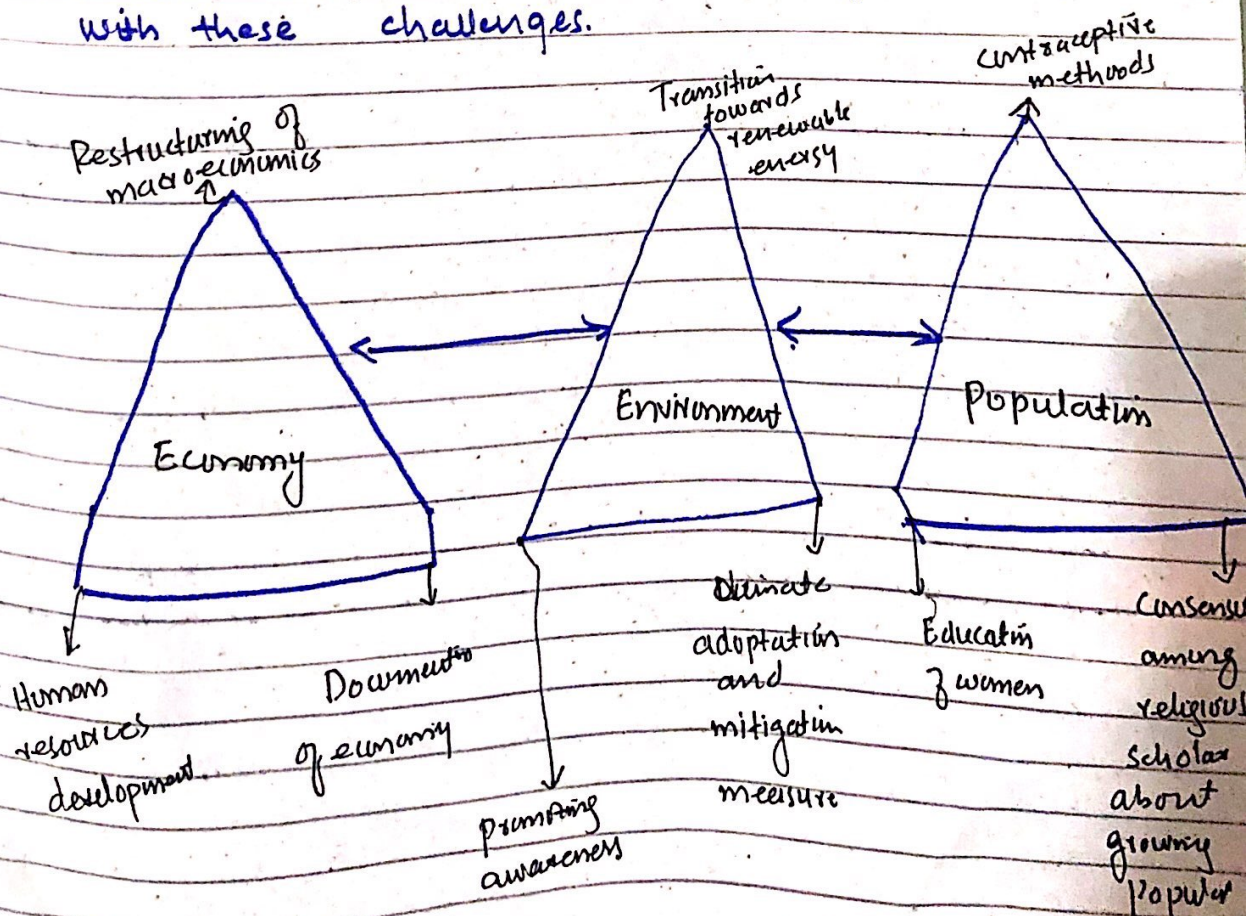 with these challenges.
Restructuring of
macroeconomics
Economy
Human
resources
development.
Documentation
of economy
Transition
towards
renewable
energy
Environment
promoting
awareness
climate
adoptation
and
mitigation
measure
contraceptive
methods
Population
Education
of women
Consensu
among
religious
scholar
about
growing
popular